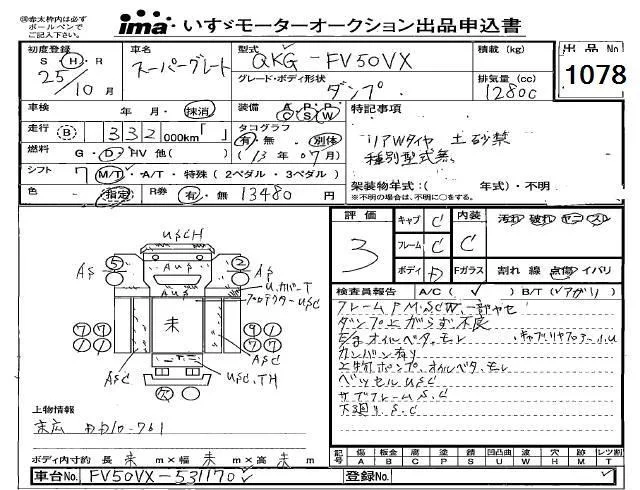 ※赤太枠内は必ず
ボールペンで
ご記入下さい。
ima いすゞモーターオークション出品申込書
初度登録 S・H・R 25/10月
車名 スーパーグレート
型式 QKG-FV50VX
グレード・ボディ形状 ダンプ
積載(kg)
排気量(cc) 12800
出品No 1078
車検 年 月・抹消
装備 A・P・P C S W
特記事項
リアWタイヤ 土砂禁
種別型式無
走行 B 332000km「 」
タコグラフ 有・無 別体
燃料 G・D・HV 他( ) (13年07月)
シフト 7 M/T・A/T・特殊(2ペダル・3ペダル)
架装物年式:( 年式)・不明
※不明の場合は、不明に○をする。
色 指定 R券 有・無 13480円
評価 3
キャブ C 内装 C 汚れ 破れ ヤニ スレ
フレーム C
ボディ D Fガラス 割れ 線 点傷 イバリ
検査員報告 A/C(✓) B/T(✓アガリ)
フレームP.M.S.C.W.一部ヤセ
ダンプ上がらず不良
E/gオイルベタ、モレ
カンバン有り
上物ポンプ、オイルベタ、モレ
ベッセルU.S.C
サブフレームS.C
下廻りS.C
USCH
5 2
AS AP
AUS
U.カバーT
プロテクターUSC
未
77 97
11 11
ASC ASC
USC,TH
欠
上物情報
ボディ内寸約 長 未 m×幅 未 m×高 未 m
記号 傷 A 板金 B 腐 C 塗 P 錆 S 凹凸曲 U 波 W 穴 H 跡 M レンズ割 T
車台No. FV50VX-531170
登録No.